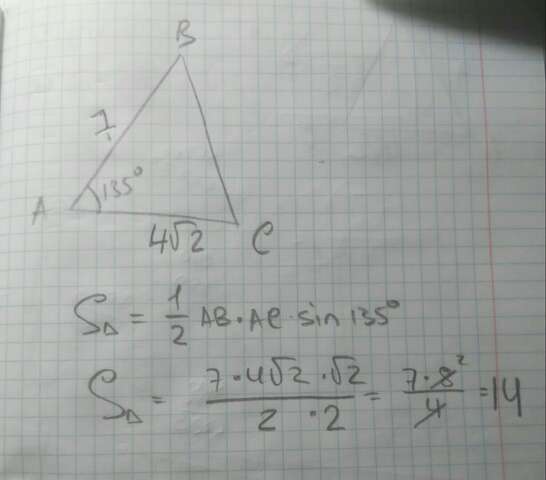 B
7
135°
A
4√2
C
S△ = 1/2 AB·AC·sin 135°
S△ = (7·4√2·√2)/(2·2) = (7·8²)/4 = 14